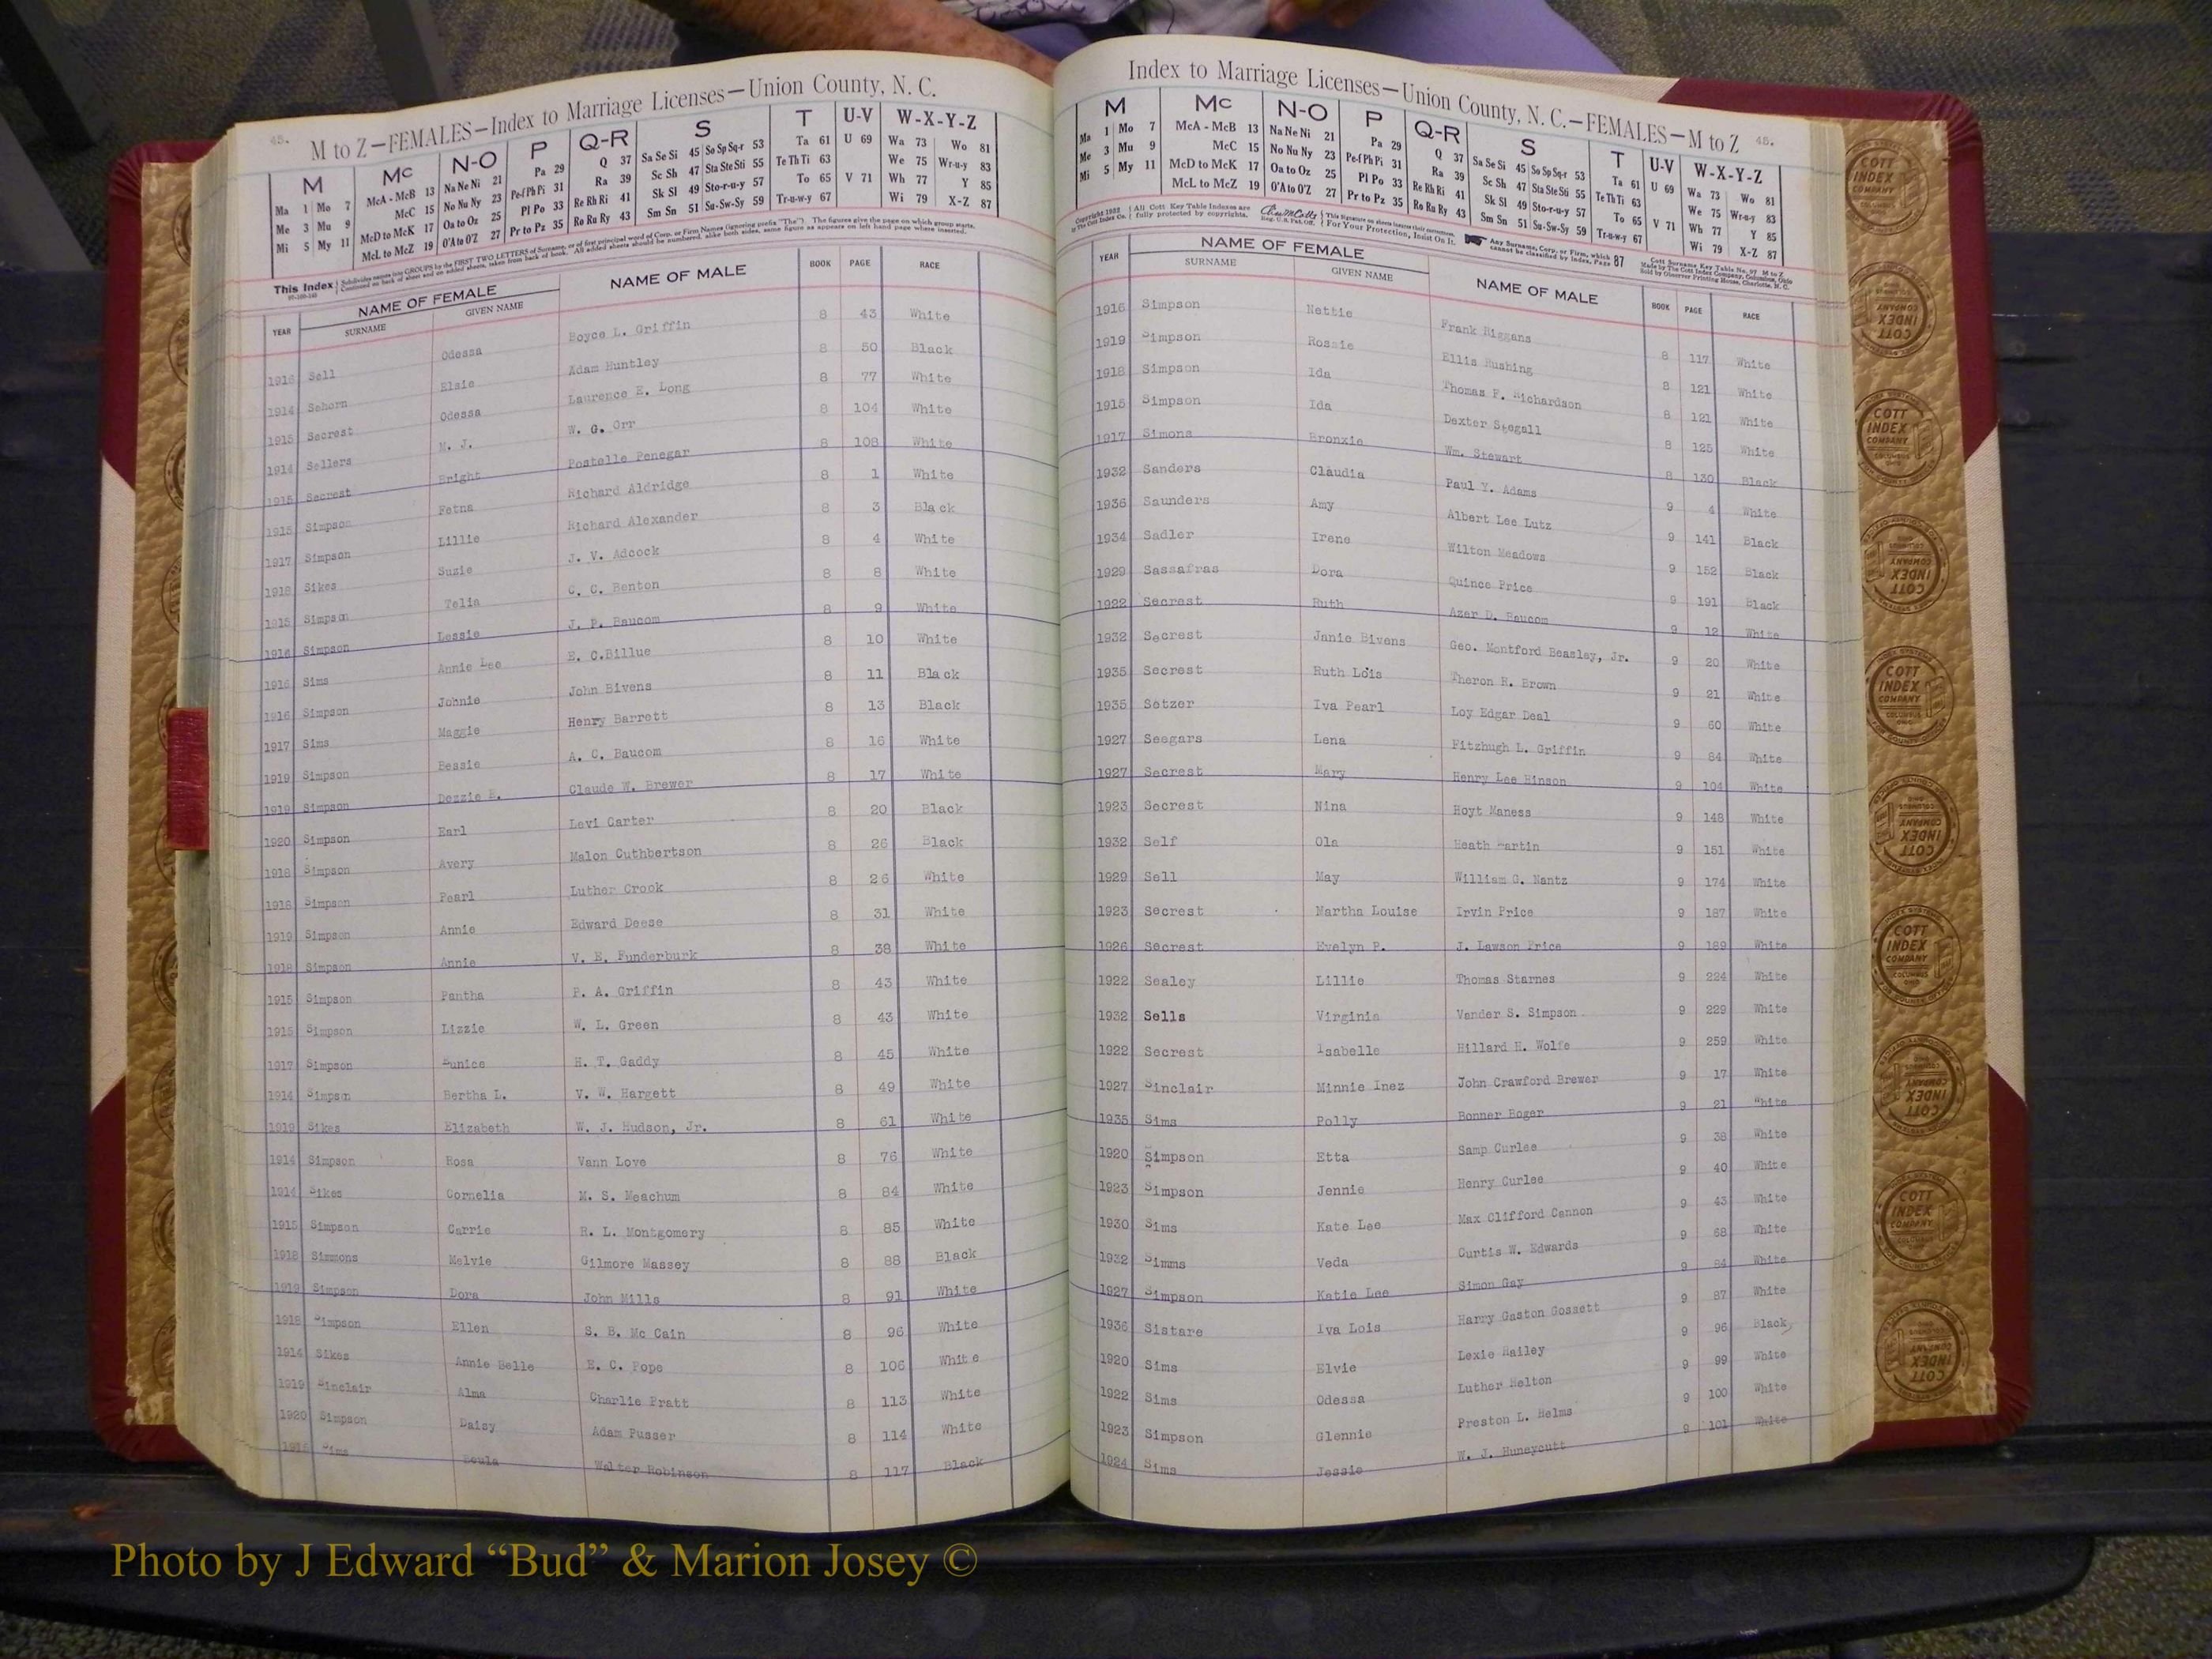 45. M to Z—FEMALES—Index to Marriage Licenses—Union County, N. C.
M Mc N-O P Q-R S T U-V W-X-Y-Z
Ma 1 Mo 7 McA - McB 13 Na Ne Ni 21 Pa 29 Q 37 Sa Se Si 45 So Sp Sq-r 53 Ta 61 U 69 Wa 73 Wo 81
Me 3 Mu 9 McC 15 No Nu Ny 23 Pe-f Ph Pi 31 Ra 39 Sc Sh 47 Sta Ste Sti 55 Te Th Ti 63 We 75 Wr-u-y 83
Mi 5 My 11 McD to McK 17 Oa to Oz 25 Pl Po 33 Re Rh Ri 41 Sk Sl 49 Sto-r-u-y 57 To 65 V 71 Wh 77 Y 85
McL to McZ 19 O'A to O'Z 27 Pr to Pz 35 Ro Ru Ry 43 Sm Sn 51 Su-Sw-Sy 59 Tr-u-w-y 67 Wi 79 X-Z 87
This Index Subdivides names into GROUPS by the FIRST TWO LETTERS of Surname, or of first principal word of Corp. or Firm Names (ignoring prefix "The"). The figures give the page on which group starts.
Continued on back of sheet and on added sheets, taken from back of book. All added sheets should be numbered, alike both sides, same figure as appears on left hand page where inserted.
YEAR NAME OF FEMALE NAME OF MALE BOOK PAGE RACE
SURNAME GIVEN NAME
1916 Sell Odessa Boyce L. Griffin 8 43 White
1914 Sehorn Elsie Adam Huntley 8 50 Black
1915 Secrest Odessa Laurence E. Long 8 77 White
1914 Sellers M. J. W. G. Orr 8 104 White
1915 Secrest Bright Postelle Penegar 8 108 White
1915 Simpson Fetna Richard Aldridge 8 1 White
1917 Simpson Lillie Richard Alexander 8 3 Black
1918 Sikes Suzie J. V. Adcock 8 4 White
1915 Simpson Telia C. C. Benton 8 8 White
1916 Simpson Lessie J. P. Baucom 8 9 White
1916 Sims Annie Lee E. C.Billue 8 10 White
1916 Simpson Johnie John Bivens 8 11 Black
1917 Sims Maggie Henry Barrett 8 13 Black
1919 Simpson Bessie A. C. Baucom 8 16 White
1919 Simpson Dozzie E. Claude W. Brewer 8 17 White
1920 Simpson Earl Levi Carter 8 20 Black
1918 Simpson Avery Malon Cuthbertson 8 26 Black
1916 Simpson Pearl Luther Crook 8 26 White
1919 Simpson Annie Edward Deese 8 31 White
1918 Simpson Annie V. E. Funderburk 8 38 White
1915 Simpson Pantha P. A. Griffin 8 43 White
1915 Simpson Lizzie W. L. Green 8 43 White
1917 Simpson Eunice H. T. Gaddy 8 45 White
1914 Simpson Bertha L. V. W. Hargett 8 49 White
1919 Sikes Elizabeth W. J. Hudson, Jr. 8 61 White
1914 Simpson Rosa Vann Love 8 76 White
1914 Sikes Cornelia M. S. Meachum 8 84 White
1915 Simpson Carrie R. L. Montgomery 8 85 White
1918 Simmons Melvie Gilmore Massey 8 88 Black
1919 Simpson Dora John Mills 8 91 White
1918 Simpson Ellen S. B. Mc Cain 8 96 White
1914 Sikes Annie Belle E. C. Pope 8 106 White
1919 Sinclair Alma Charlie Pratt 8 113 White
1920 Simpson Daisy Adam Pusser 8 114 White
Sims Walter Robinson 8 117 Black
Index to Marriage Licenses—Union County, N. C.—FEMALES—M to Z 45.
M Mc N-O P Q-R S T U-V W-X-Y-Z
Ma 1 Mo 7 McA - McB 13 Na Ne Ni 21 Pa 29 Q 37 Sa Se Si 45 So Sp Sq-r 53 Ta 61 U 69 Wa 73 Wo 81
Me 3 Mu 9 McC 15 No Nu Ny 23 Pe-f Ph Pi 31 Ra 39 Sc Sh 47 Sta Ste Sti 55 Te Th Ti 63 We 75 Wr-u-y 83
Mi 5 My 11 McD to McK 17 Oa to Oz 25 Pl Po 33 Re Rh Ri 41 Sk Sl 49 Sto-r-u-y 57 To 65 V 71 Wh 77 Y 85
McL to McZ 19 O'A to O'Z 27 Pr to Pz 35 Ro Ru Ry 43 Sm Sn 51 Su-Sw-Sy 59 Tr-u-w-y 67 Wi 79 X-Z 87
All Cott Key Table Indexes are fully protected by copyrights.
For Your Protection, Insist On It.
Any Surname, Corp. or Firm, which cannot be classified by Index, Page 87
Made by The Cott Index Company, Columbus, Ohio
Sold by Observer Printing House, Charlotte, N. C.
YEAR NAME OF FEMALE NAME OF MALE BOOK PAGE RACE
SURNAME GIVEN NAME
1916 Simpson Nettie Frank Riggans 8 117 White
1919 Simpson Rossie Ellis Rushing 8 121 White
1918 Simpson Ida Thomas F. Richardson 8 121 White
1915 Simpson Ida Dexter Stegall 8 125 White
1917 Simons Bronxie Wm. Stewart 8 130 Black
1932 Sanders Claudia Paul Y. Adams 9 4 White
1936 Saunders Amy Albert Lee Lutz 9 141 Black
1934 Sadler Irene Wilton Meadows 9 152 Black
1929 Sassafras Dora Quince Price 9 191 Black
1922 Secrest Ruth Azer D. Baucom 9 12 White
1932 Secrest Janie Bivens Geo. Montford Beasley, Jr. 9 20 White
1935 Secrest Ruth Lois Theron R. Brown 9 21 White
1935 Setzer Iva Pearl Loy Edgar Deal 9 60 White
1927 Seegars Lena Fitzhugh L. Griffin 9 84 White
1927 Secrest Mary Henry Lee Hinson 9 104 White
1923 Secrest Nina Hoyt Maness 9 148 White
1932 Self Ola Heath Martin 9 151 White
1929 Sell May William G. Nantz 9 174 White
1923 Secrest Martha Louise Irvin Price 9 187 White
1926 Secrest Evelyn P. J. Lawson Price 9 189 White
1922 Sealey Lillie Thomas Starnes 9 224 White
1932 Sells Virginia Vander S. Simpson 9 229 White
1922 Secrest Isabelle Hillard H. Wolfe 9 259 White
1927 Sinclair Minnie Inez John Crawford Brewer 9 17 White
1935 Sims Polly Bonner Boger 9 21 White
1920 Simpson Etta Samp Curlee 9 38 White
1923 Simpson Jennie Henry Curlee 9 40 White
1930 Sims Kate Lee Max Clifford Cannon 9 43 White
1932 Simms Veda Curtis W. Edwards 9 68 White
1927 Simpson Katie Lee Simon Gay 9 84 White
1936 Sistare Iva Lois Harry Gaston Gossett 9 87 White
1920 Sims Elvie Lexie Hailey 9 96 Black
1922 Sims Odessa Luther Helton 9 99 White
1923 Simpson Glennie Preston L. Helms 9 100 White
1924 Sims Jessie W. J. Huneycutt 9 101 White
COTT INDEX COMPANY COLUMBUS OHIO
Photo by J Edward “Bud” & Marion Josey ©